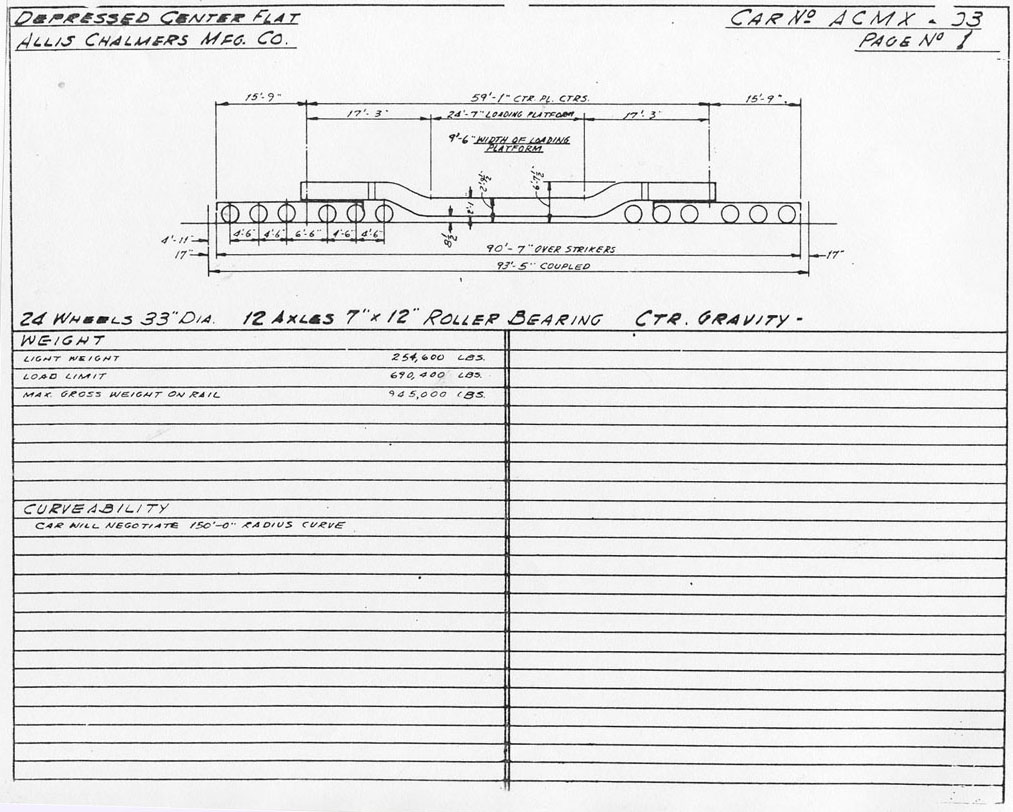 DEPRESSED CENTER FLAT
CAR Nº ACMX - 33
ALLIS CHALMERS MFG. CO.
PAGE Nº 1
15'-9" 59'-1" CTR. PL. CTRS. 15'-9"
17'-3" 24'-7" LOADING PLATFORM 17'-3"
9'-6" WIDTH OF LOADING
PLATFORM
4'-11" 4'-6" 4'-6" 6'-6" 4'-6" 4'-6" 8½
17" 90'-7" OVER STRIKERS 17"
93'-5" COUPLED
24 WHEELS 33" DIA. 12 AXLES 7" x 12" ROLLER BEARING CTR. GRAVITY -
WEIGHT
LIGHT WEIGHT 254,600 LBS.
LOAD LIMIT 690,400 LBS.
MAX. GROSS WEIGHT ON RAIL 945,000 LBS.
CURVEABILITY
CAR WILL NEGOTIATE 150'-0" RADIUS CURVE